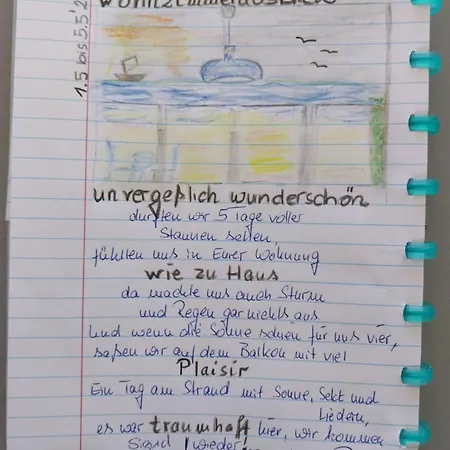 1.5 bis 5.5'2
Wohnzimmerausblick
unvergeßlich wunderschön
durften wir 5 Tage voller
Staunen sehen,
fühlten uns in Eurer Wohnung
wie zu Haus
da machte uns auch Sturm
und Regen gar nichts aus
Und wenn die Sonne schien für uns vier,
saßen wir auf dem Balkon mit viel
Plaisir
Ein Tag am Strand mit Sonne, Sekt und
Liedern,
es war traumhaft hier, wir kommen
wieder!